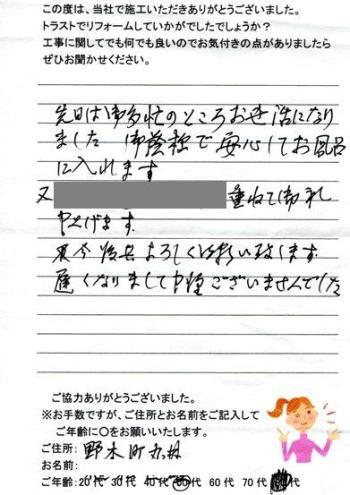 この度は、当社で施工いただきありがとうございました。
トラストでリフォームしていかがでしたでしょうか？
工事に関してでも何でも良いのでお気付きの点がありましたら
ぜひお聞かせください。
先日は御多忙のところお世話になり
ました 御蔭様で安心してお風呂
に入れます
又 重ねて御礼
申上げます
今後共よろしくお願い致します
遅くなりまして申訳ございませんでした
ご協力ありがとうございました。
※お手数ですが、ご住所とお名前をご記入して
ご年齢に○をお願いいたします。
ご住所: 野木町
お名前:
ご年齢: 20代 30代 40代 50代 60代 70代